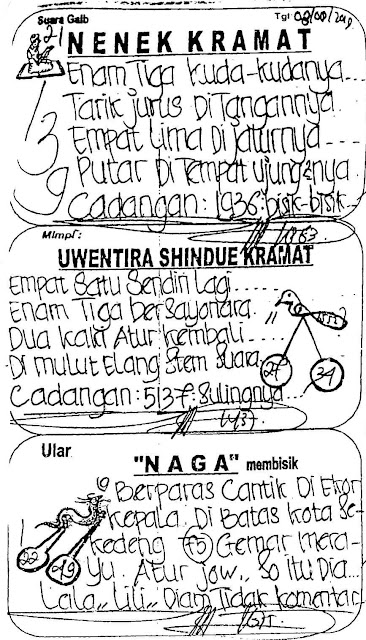 Suara Gaib
Tgl
NENEK KRAMAT
Enam Tiga kuda-kudanya....
Tarik jurus DiTangannya.
Empat Lima Di jaturnya
Putar Di Tempat ujung²nya
Cadangan: 1936: bisik-bisik
Mimpi:
UWENTIRA SHINDUE KRAMAT
Empat Satu Sendiri Lagi.......
Enam Tiga bersayonara.
Dua kaki Atur kembali.....
Di mulut Elang Stem Suara
34
Cadangan: 5137: Sulingnya
Ular
"NAGA" membisik
Berparas Cantik Di Ekor
kepala Di Batas kota se-
kedeng Gemar mera-
22
49
Yu. Atur jow,, So itu Dia...
Lala,, Lili,, Diam Tidak komentar